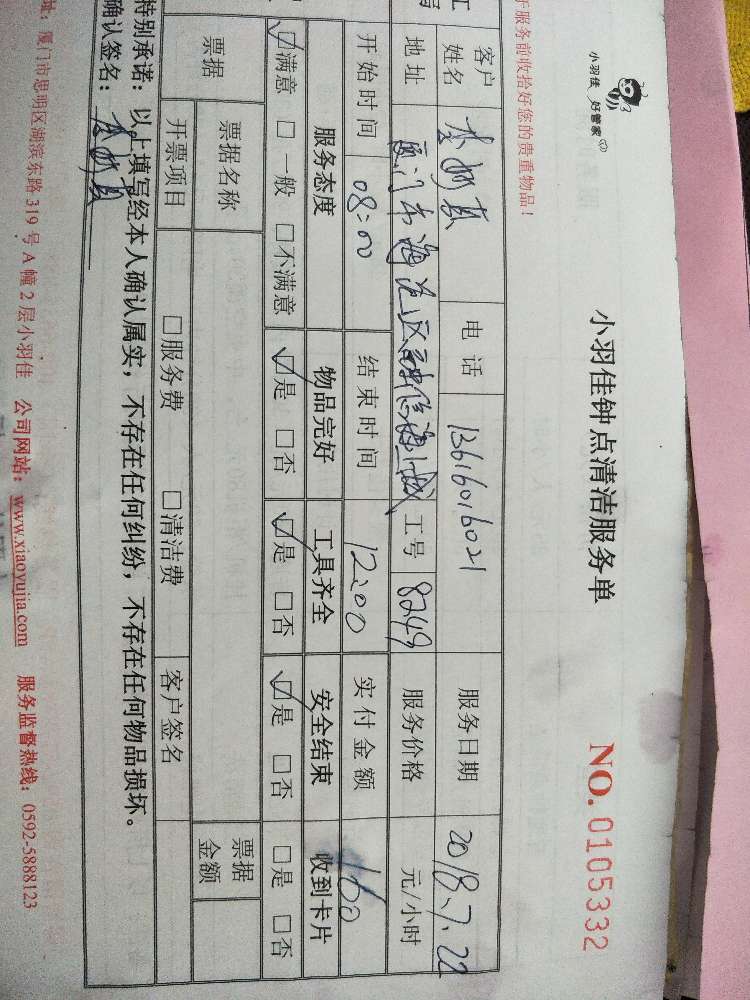 小羽佳 好管家
小羽佳钟点清洁服务单
NO. 0105332
于服务前收拾好您的贵重物品！
客户姓名 电话 13616016021 服务日期 2018.7.22
地址 厦门市海沧区 工号 8249 服务价格 元/小时
开始时间 08:00 结束时间 12:00 实付金额 160
服务态度 物品完好 工具齐全 安全结束 收到卡片
☑满意 □一般 □不满意 ☑是 □否 ☑是 □否 ☑是 □否 □是 □否
票据 票据名称 票据金额
开票项目 □服务费 □清洁费 客户签名
特别承诺：以上填写经本人确认属实，不存在任何纠纷，不存在任何物品损坏。
确认签名：
址：厦门市思明区湖滨东路 319 号 A 幢 2 层小羽佳 公司网站：www.xiaoyujia.com 服务监督热线：0592-5888123